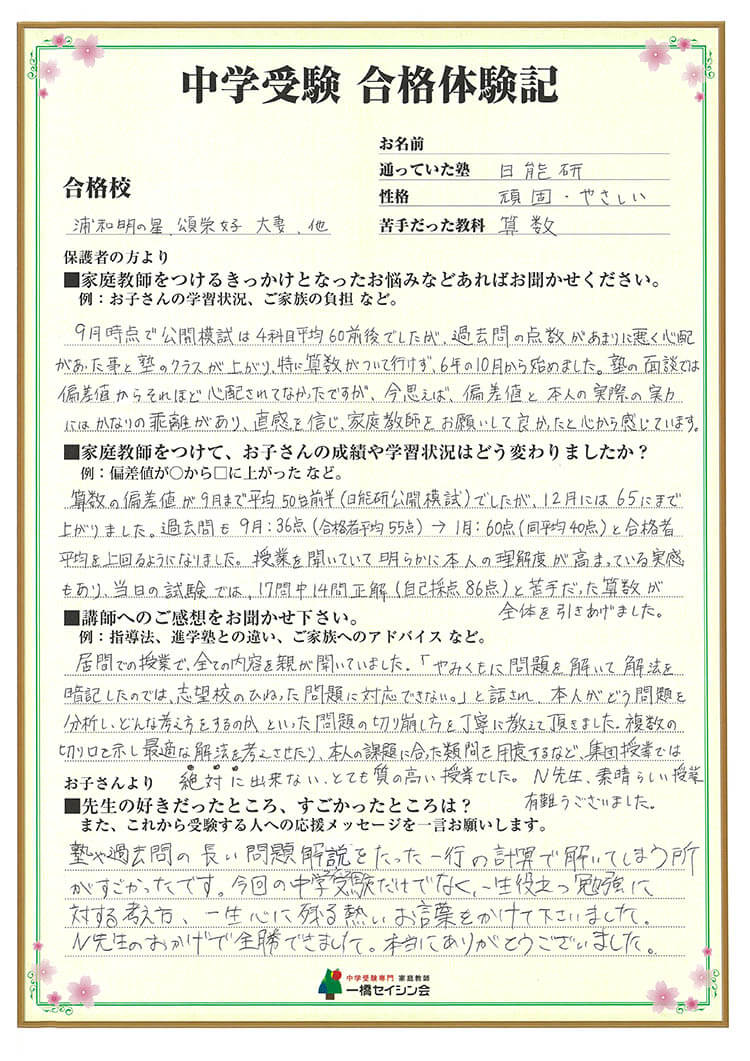 中学受験 合格体験記
お名前
通っていた塾 日能研
合格校
性格 頑固・やさしい
浦和明の星、頌栄女子 大妻、他
苦手だった教科 算数
保護者の方より
■家庭教師をつけるきっかけとなったお悩みなどあればお聞かせください。
例：お子さんの学習状況、ご家族の負担 など。
9月時点で公開模試は4科目平均60前後でしたが、過去問の点数があまりに悪く心配
があった事と塾のクラスが上がり、特に算数がついて行けず、6年の10月から始めました。塾の面談では
偏差値からそれほど心配されてなかったですが、今思えば、偏差値と本人の実際の実力
にはかなりの乖離があり、直感を信じ、家庭教師をお願いして良かったと心から感じています。
■家庭教師をつけて、お子さんの成績や学習状況はどう変わりましたか？
例：偏差値が○から□に上がった など。
算数の偏差値が9月まで平均50台前半(日能研公開模試)でしたが、12月には65にまで
上がりました。過去問も9月:36点(合格者平均55点)→1月:60点(同平均40点)と合格者
平均を上回るようになりました。授業を聞いていて明らかに本人の理解度が高まっている実感
もあり、当日の試験では、17問中14問正解(自己採点86点)と苦手だった算数が
全体を引きあげました。
■講師へのご感想をお聞かせ下さい。
例：指導法、進学塾との違い、ご家族へのアドバイス など。
居間での授業で、全ての内容を親が聞いていました。「やみくもに問題を解いて解法を
暗記したのでは、志望校のひねった問題に対応できない。」と話され、本人がどう問題を
分析し、どんな考え方をするのか、といった問題の切り崩し方を丁寧に教えて頂きました。複数の
切り口を示し最適な解法を考えさせたり、本人の課題に合った類問を用意するなど、集団授業では
絶対に出来ない、とても質の高い授業でした。N先生、素晴らしい授業
有難うございました。
お子さんより
■先生の好きだったところ、すごかったところは？
また、これから受験する人への応援メッセージを一言お願いします。
塾や過去問の長い問題解説をたった一行の計算で解いてしまう所
がすごかったです。今回の中学受験だけでなく、一生役立つ勉強に
対する考え方、一生心に残る熱いお言葉をかけて下さいました。
N先生のおかげで全勝できました。本当にありがとうございました。
中学受験専門 家庭教師
一橋セイシン会